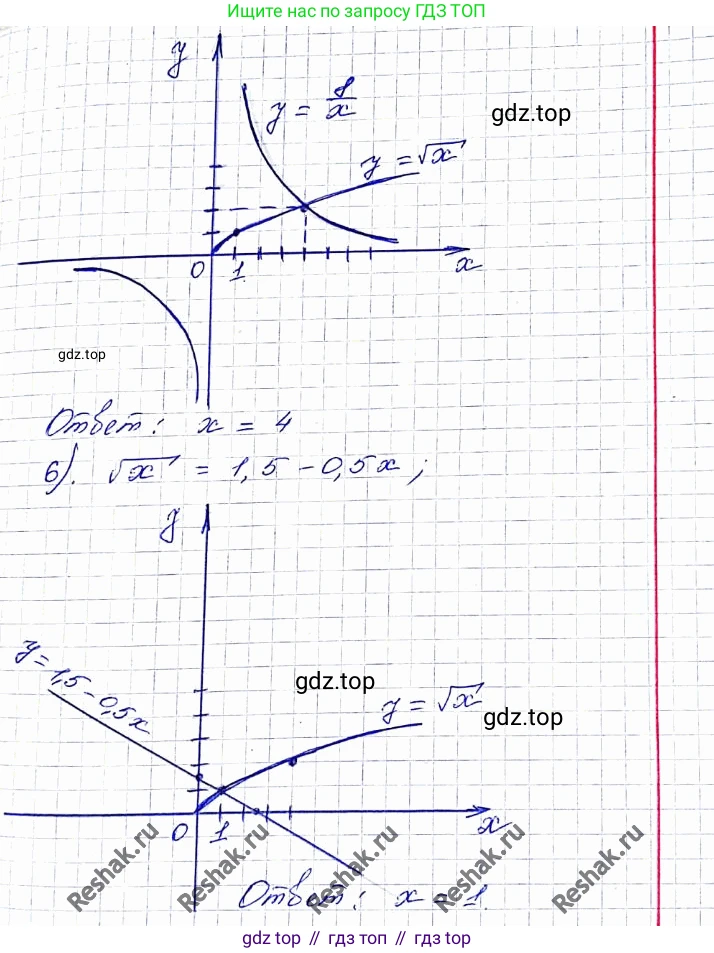 Ищите нас по запросу ГДЗ ТОП
y
y = 8/x
gdz.top
y = √x
0 1 x
gdz.top
Ответ: x = 4
б). √x = 1,5 - 0,5x;
y
y = 1,5 - 0,5x
gdz.top
y = √x
gdz.top
0 1 x
Reshak.ru Reshak.ru Reshak.ru Reshak.ru Reshak.ru
Ответ: x = 1.
gdz top // гдз топ // gdz top